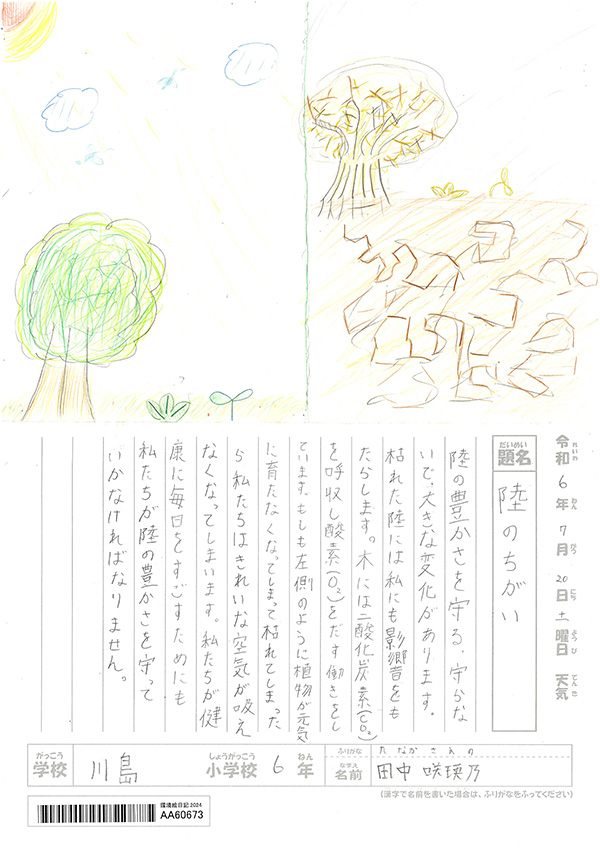 令和6年7月20日土曜日 天気
れいわ ねん がつ にち ようび てんき
だいめい
題名
陸のちがい
陸の豊かさを守る、守らな
いで、大きな変化があります。
枯れた陸には私にも影響をも
たらします。木には二酸化炭素(CO₂)
を呼収し酸素(O₂)をだす働きをし
ています。もしも左側のように植物が元気
に育たなくなってしまって枯れてしまった
ら私たちはきれいな空気が吸え
なくなってしまいます。私たちが健
康に毎日をすごすためにも
私たちが陸の豊かさを守って
いかなければなりません。
がっこう しょうがっこう ねん ふりがな たなかさえの
学校 川島 小学校 6年 なまえ 名前 田中 咲瑛乃
(漢字で名前を書いた場合は、ふりがなをふってください)
環境絵日記2024
AA60673